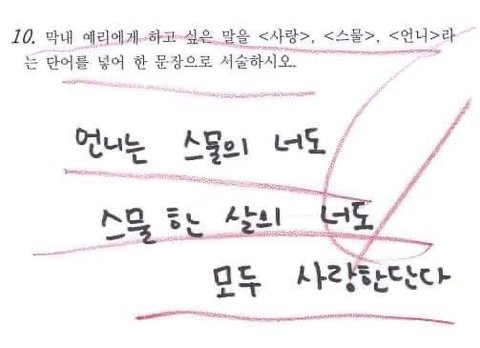 10. 막내 예리에게 하고 싶은 말을 <사랑>, <스물>, <언니>라
는 단어를 넣어 한 문장으로 서술하시오.
언니는 스물의 너도
스물 한 살의 너도
모두 사랑한단다